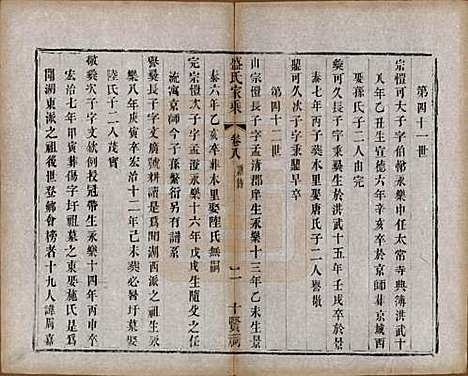 第四十一世
宗愷可大子字伯郁永樂中任太常寺典簿洪武十
八年乙丑生宣德六年辛亥卒於京師葬京城西
娶孫氏子二人由完
奭可久長子字秉彝生於洪武十五年壬戌卒於景
泰七年丙子葬木里娶唐氏子二人譽敬
可久次子字秉彝早卒
第四十二世
由宗愷長子字孟清郡庠生永樂十三年乙未生景
盛氏家乘
卷八
二
十賢祠
泰六年乙亥卒葬木里娶陸氏無嗣
完宗愷次子字孟永樂十六年戊戌生隨父卒
流寓京師今子孫繁衍另有譜系
譽奭長子字文廣號耕讀是爲開湖西派之祖永
樂八年庚寅卒宏治十二年己未葬必暑圩墓娶
陸氏子二人茂賓
敬奭次子字文例授冠帶生永樂十四年丙申卒
宏治七年甲寅葬傷字圩祖墓之東娶施氏是爲
開湖東派之祖後世登鄉會榜者十九人諱周嘉